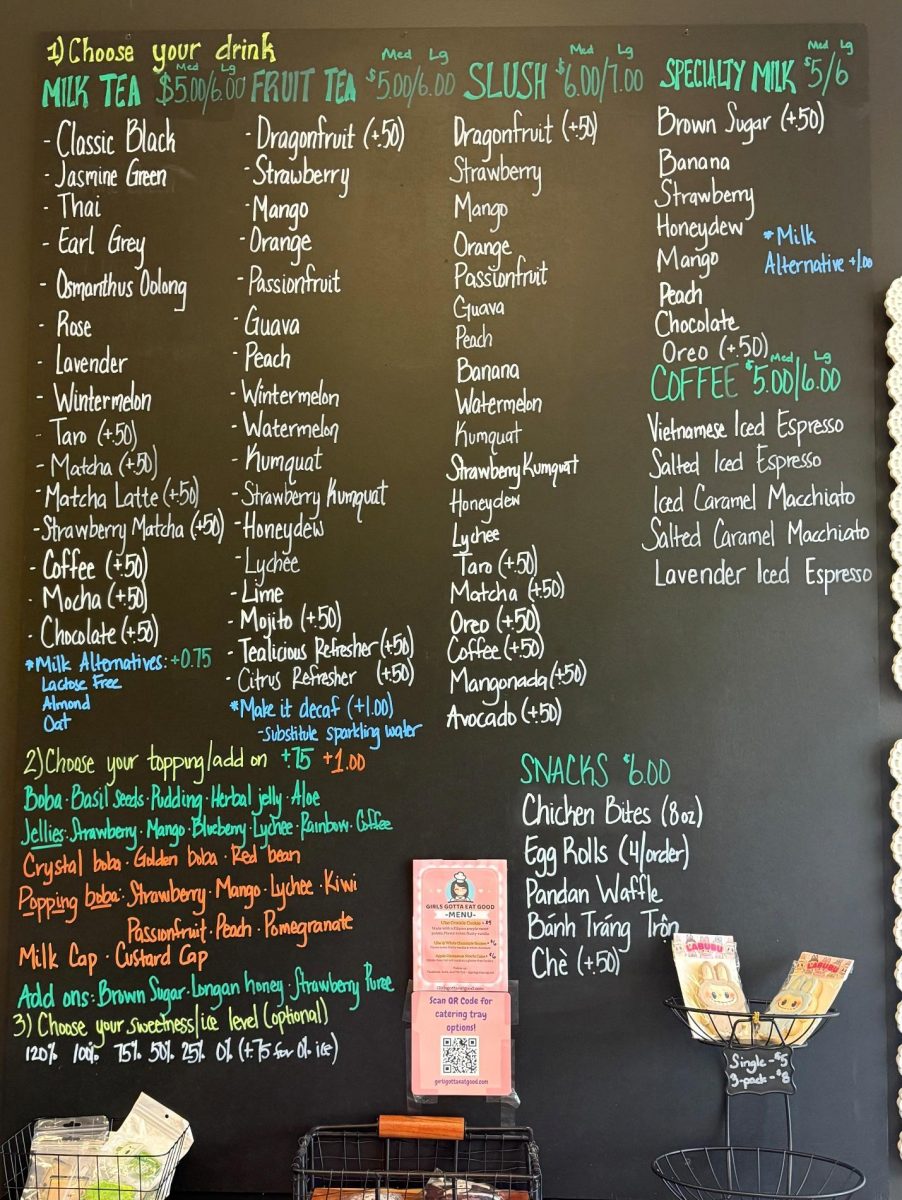 1) Choose your drink
MILK TEA Med Lg $5.00/6.00
- Classic Black
- Jasmine Green
- Thai
- Earl Grey
- Osmanthus Oolong
- Rose
- Lavender
- Wintermelon
- Taro (+.50)
- Matcha (+.50)
- Matcha Latte (+.50)
- Strawberry Matcha (+.50)
- Coffee (+.50)
- Mocha (+.50)
- Chocolate (+.50)
*Milk Alternatives: +0.75
Lactose Free
Almond
Oat
FRUIT TEA Med Lg $5.00/6.00
- Dragonfruit (+.50)
- Strawberry
- Mango
- Orange
- Passionfruit
- Guava
- Peach
- Wintermelon
- Watermelon
- Kumquat
- Strawberry Kumquat
- Honeydew
- Lychee
- Lime
- Mojito (+.50)
- Tealicious Refresher (+.50)
- Citrus Refresher (+.50)
*Make it decaf (+1.00)
- Substitute sparkling water
SLUSH Med Lg $6.00/7.00
Dragonfruit (+.50)
Strawberry
Mango
Orange
Passionfruit
Guava
Peach
Banana
Watermelon
Kumquat
Strawberry Kumquat
Honeydew
Lychee
Taro (+.50)
Matcha (+.50)
Oreo (+.50)
Coffee (+.50)
Mangonada (+.50)
Avocado (+.50)
SPECIALTY MILK Med Lg $5/6
Brown Sugar (+.50)
Banana
Strawberry
Honeydew
Mango
Peach
Chocolate
Oreo (+.50)
*Milk
Alternative +1.00
COFFEE Med Lg $5.00/6.00
Vietnamese Iced Espresso
Salted Iced Espresso
Iced Caramel Macchiato
Salted Caramel Macchiato
Lavender Iced Espresso
2) Choose your topping/add on +.75 +1.00
Boba · Basil Seeds · Pudding · Herbal jelly · Aloe
Jellies: Strawberry · Mango · Blueberry · Lychee · Rainbow · Coffee
Crystal boba · Golden boba · Red bean
Popping boba: Strawberry · Mango · Lychee · Kiwi
Passionfruit · Peach · Pomegranate
Milk Cap · Custard Cap
Add ons: Brown Sugar · Longan honey · Strawberry Puree
3) Choose your sweetness/ice level (optional)
120% 100% 75% 50% 25% 0% (+.75 for 0% ice)
SNACKS $6.00
Chicken Bites (8oz)
Egg Rolls (4/order)
Pandan Waffle
Bánh Tráng Trộn
Chè (+.50)
GIRLS GOTTA EAT GOOD
-MENU-
Scan QR Code for
catering tray
options!
girlsgottaeatgood.com
LABUBU
LABUBU
Single - $5
3-pack - $8